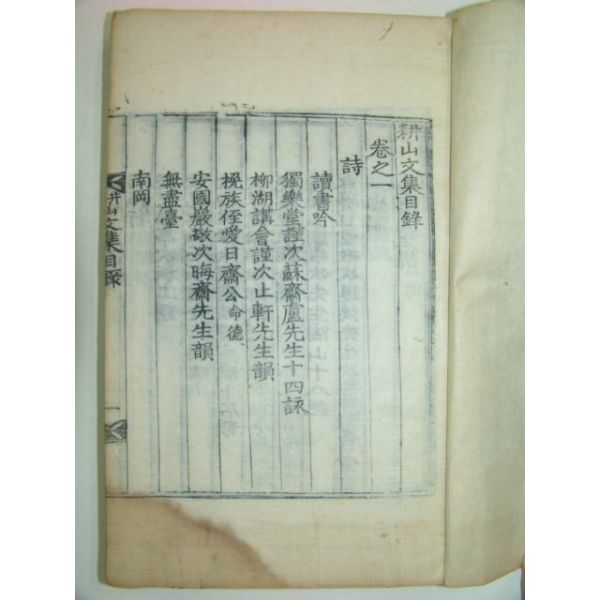 耕山文集目錄
卷之一
詩
讀書吟
獨樂堂謹次蘇齋盧先生十四詠
柳湖講會謹次止軒先生韻
挽族侄愛日齋公命德
安國巖敬次晦齋先生韻
無盡臺
南岡
耕山文集目錄
一